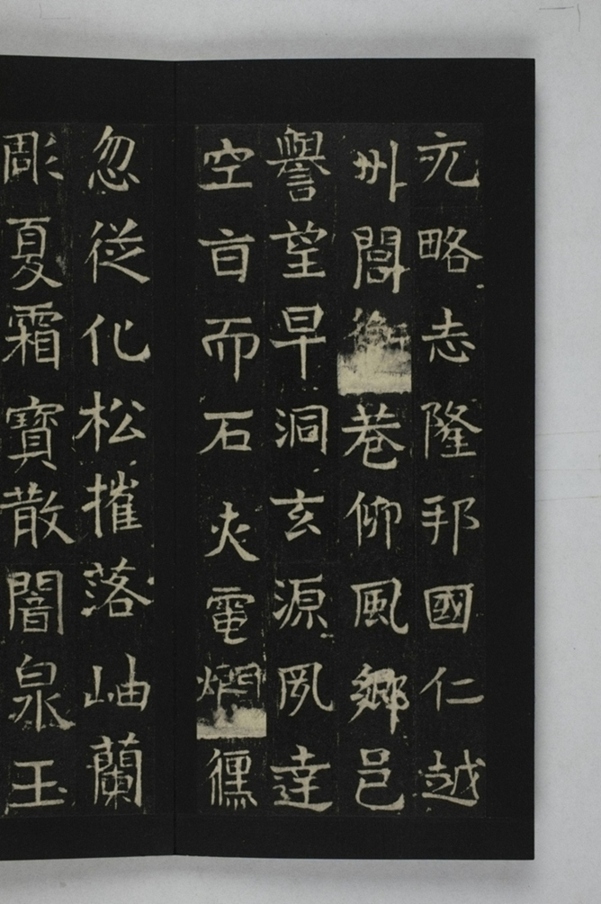 亢略志隆邦國仁越
州閭巷仰風鄉邑
譽望早洞玄源夙達
空旨而石火電燗儵
忽從化松摧落岫蘭
彫夏霜寶散闇泉玉